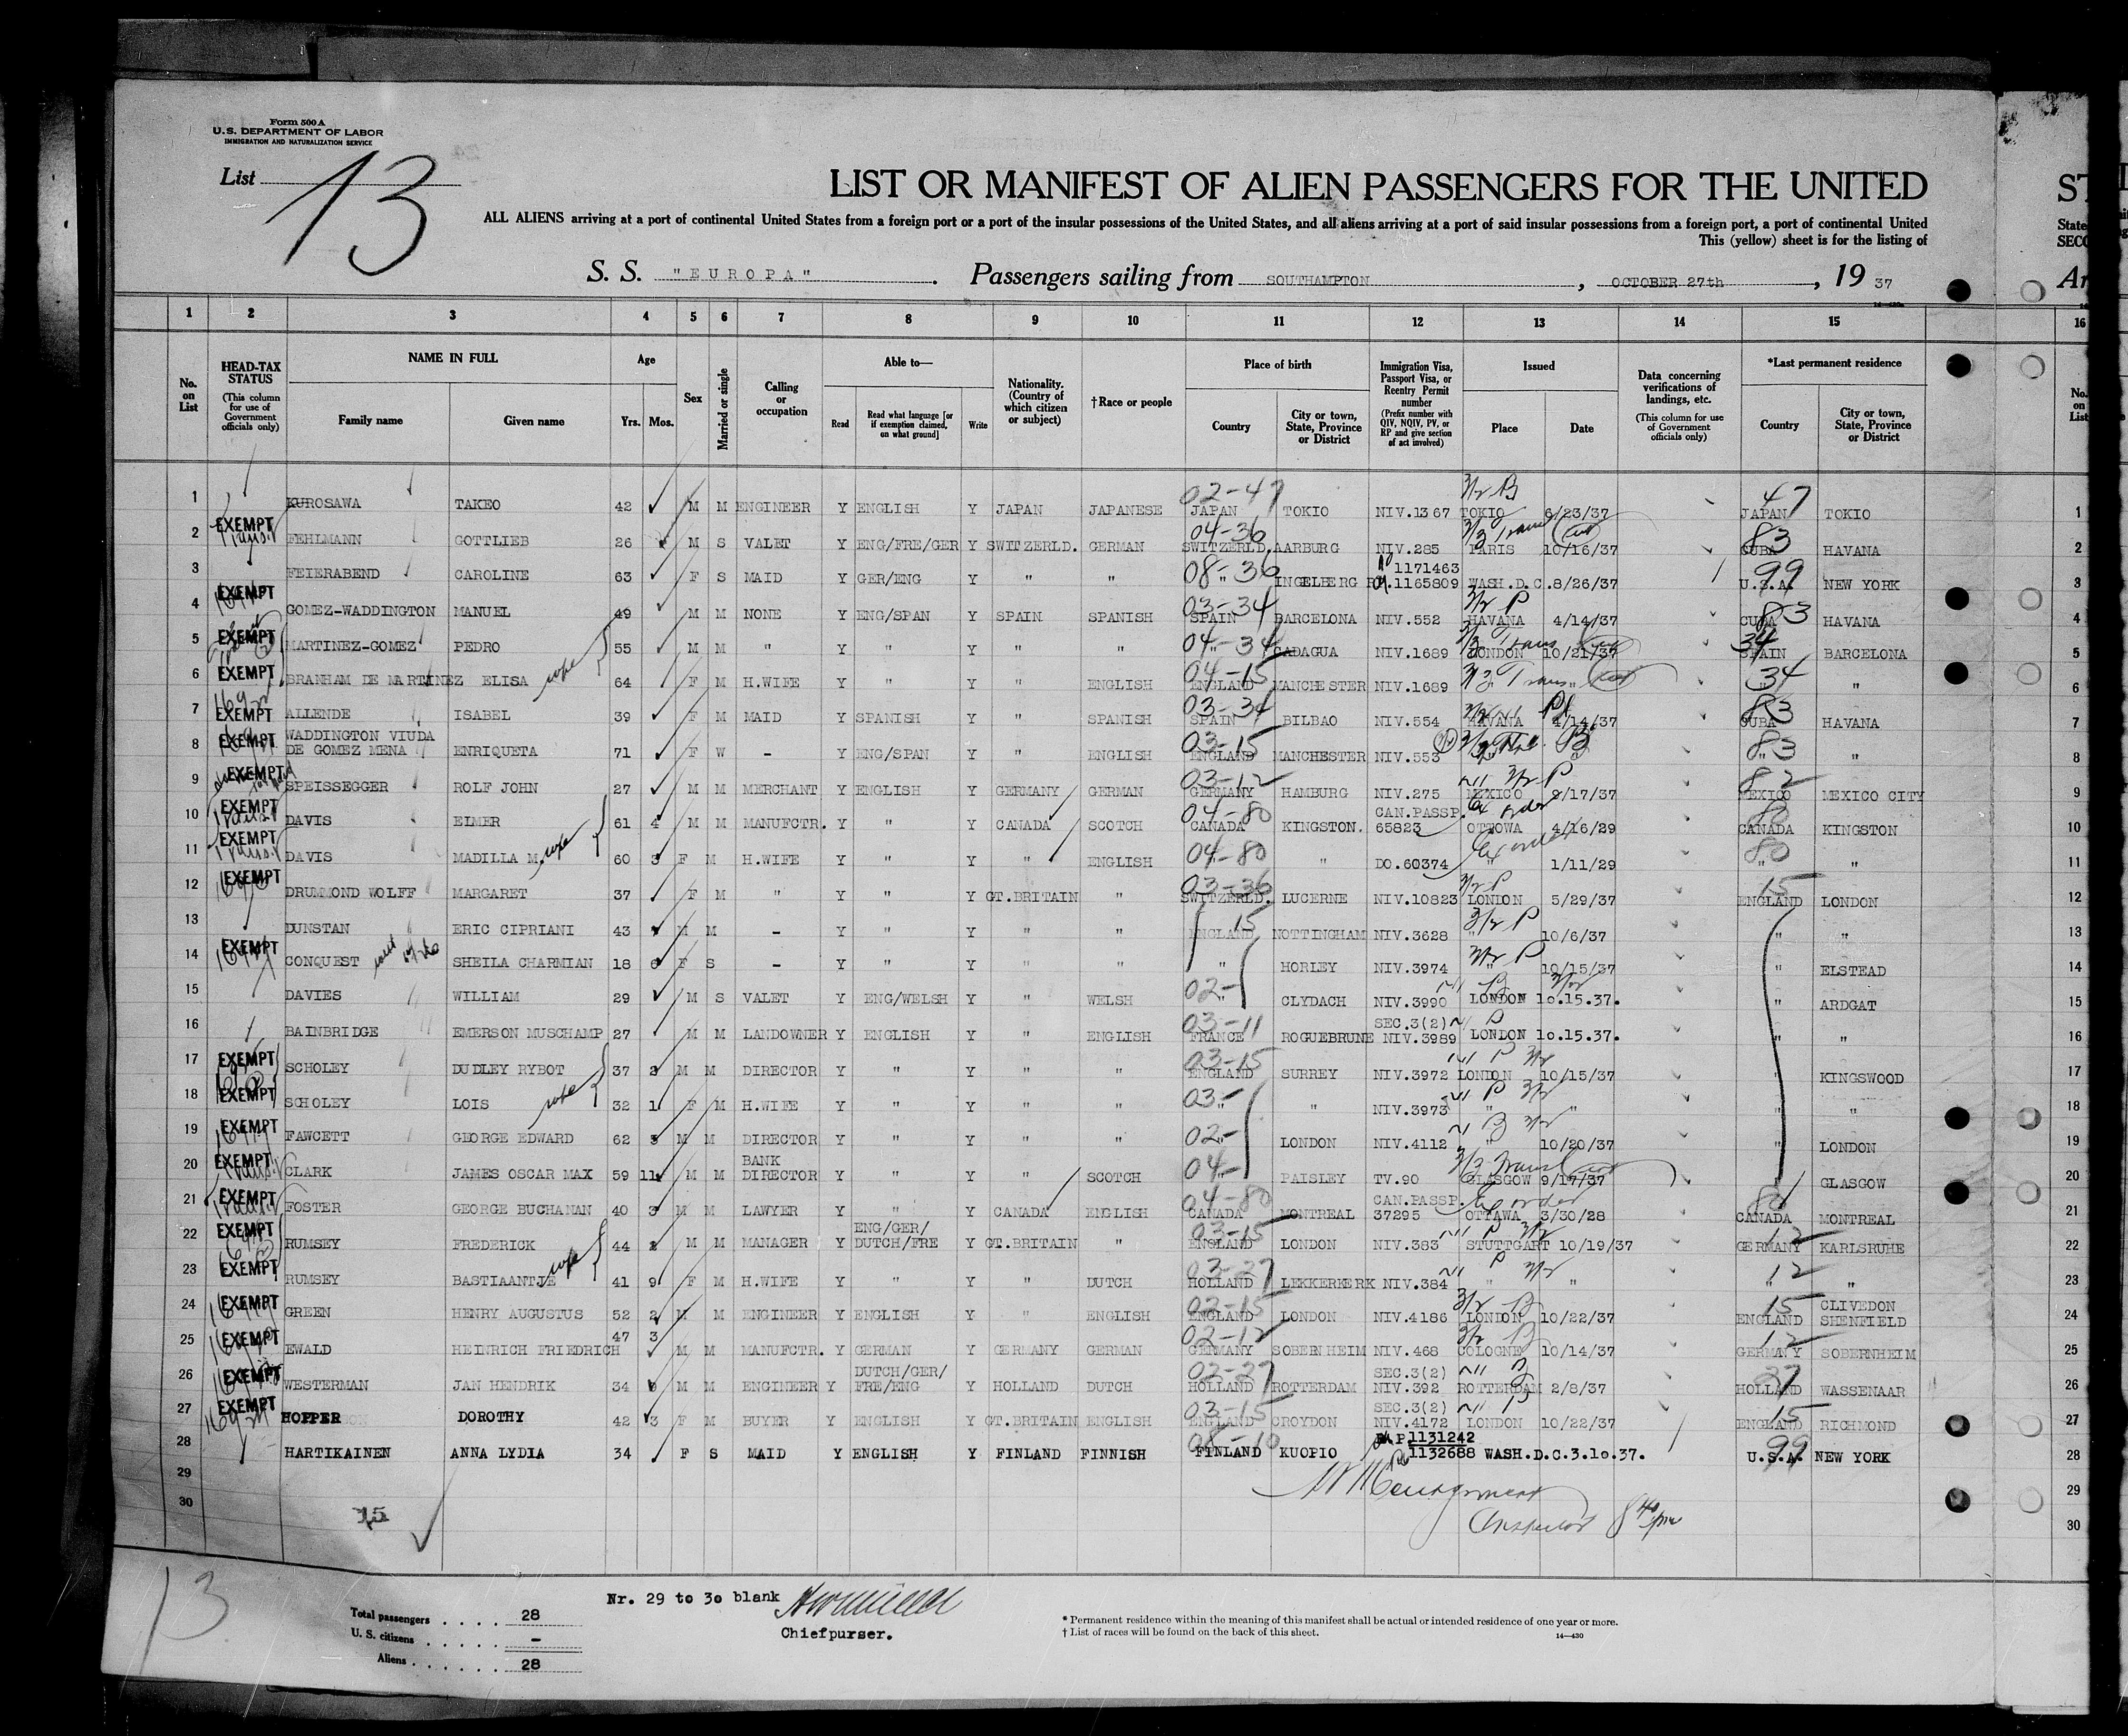 Form 500 A
U.S. DEPARTMENT OF LABOR
IMMIGRATION AND NATURALIZATION SERVICE
List 13
LIST OR MANIFEST OF ALIEN PASSENGERS FOR THE UNITED
ALL ALIENS arriving at a port of continental United States from a foreign port or a port of the insular possessions of the United States, and all aliens arriving at a port of said insular possessions from a foreign port, a port of continental United
This (yellow) sheet is for the listing of
S. S. "EUROPA" . Passengers sailing from SOUTHAMPTON , OCTOBER 27th , 19 37
1 2 3 4 5 6 7 8 9 10 11 12 13 14 15 16
No. on List
HEAD-TAX STATUS (This column for use of Government officials only)
NAME IN FULL Family name Given name
Age Yrs. Mos.
Sex
Married or single
Calling or occupation
Able to— Read Read what language [or if exemption claimed, on what ground] Write
Nationality. (Country of which citizen or subject)
†Race or people
Place of birth Country City or town, State, Province or District
Immigration Visa, Passport Visa, or Reentry Permit number (Prefix number with QIV, NQIV, PV, or RP and give section of act involved)
Issued Place Date
Data concerning verifications of landings, etc. (This column for use of Government officials only)
*Last permanent residence Country City or town, State, Province or District
No. on List
1 KUROSAWA TAKEO 42 M M ENGINEER Y ENGLISH Y JAPAN JAPANESE 02-47 JAPAN TOKIO NIV.1367 TOKIO 6/23/37 47 JAPAN TOKIO 1
2 EXEMPT FEHLMANN GOTTLIEB 26 M S VALET Y ENG/FRE/GER Y SWITZERLD. GERMAN 04-36 SWITZERLD. AARBURG NIV.285 PARIS 10/16/37 83 CUBA HAVANA 2
3 FEIERABEND CAROLINE 63 F S MAID Y GER/ENG Y " " 08-36 " INGELBERG 1171463 1165809 WASH.D.C. 8/26/37 99 U.S.A. NEW YORK 3
4 EXEMPT GOMEZ-WADDINGTON MANUEL 49 M M NONE Y ENG/SPAN Y SPAIN SPANISH 03-34 SPAIN BARCELONA NIV.552 HAVANA 4/14/37 83 CUBA HAVANA 4
5 EXEMPT MARTINEZ-GOMEZ PEDRO 55 M M " Y " Y " " 04-34 " CADAGUA NIV.1689 LONDON 10/21/37 34 SPAIN BARCELONA 5
6 EXEMPT BRANHAM DE MARTINEZ ELISA 64 F M H.WIFE Y " Y " ENGLISH 04-15 ENGLAND MANCHESTER NIV.1689 " " 34 " " 6
7 EXEMPT ALLENDE ISABEL 39 F M MAID Y SPANISH Y " SPANISH 03-34 SPAIN BILBAO NIV.554 HAVANA 4/14/37 83 CUBA HAVANA 7
8 EXEMPT WADDINGTON VIUDA DE GOMEZ MENA ENRIQUETA 71 F W - Y ENG/SPAN Y " ENGLISH 03-15 ENGLAND MANCHESTER NIV.553 " " 83 " " 8
9 EXEMPT SPEISSEGGER ROLF JOHN 27 M M MERCHANT Y ENGLISH Y GERMANY GERMAN 03-12 GERMANY HAMBURG NIV.275 MEXICO 9/17/37 82 MEXICO MEXICO CITY 9
10 EXEMPT DAVIS ELMER 61 4 M M MANUFCTR. Y " Y CANADA SCOTCH 04-80 CANADA KINGSTON. CAN.PASSP. 65823 OTTOWA 4/16/29 80 CANADA KINGSTON 10
11 EXEMPT DAVIS MADILLA M. 60 3 F M H.WIFE Y " Y " ENGLISH 04-80 " " DO.60374 " 1/11/29 80 " " 11
12 EXEMPT DRUMMOND WOLFF MARGARET 37 F M " Y " Y GT.BRITAIN " 03-36 SWITZERLD. LUCERNE NIV.10823 LONDON 5/29/37 15 ENGLAND LONDON 12
13 DUNSTAN ERIC CIPRIANI 43 M M - Y " Y " " 15 ENGLAND NOTTINGHAM NIV.3628 " 10/6/37 " " 13
14 EXEMPT CONQUEST SHEILA CHARMIAN 18 6 F S - Y " Y " " " HORLEY NIV.3974 " 10/15/37 " ELSTEAD 14
15 DAVIES WILLIAM 29 M S VALET Y ENG/WELSH Y " WELSH 02- " CLYDACH NIV.3990 LONDON 10.15.37. " ARDGAT 15
16 BAINBRIDGE EMERSON MUSCHAMP 27 M M LANDOWNER Y ENGLISH Y " ENGLISH 03-11 FRANCE ROGUEBRUNE SEC.3(2) NIV.3989 LONDON 10.15.37. " " 16
17 EXEMPT SCHOLEY DUDLEY RYBOT 37 2 M M DIRECTOR Y " Y " " 03-15 ENGLAND SURREY NIV.3972 LONDON 10/15/37 " KINGSWOOD 17
18 EXEMPT SCHOLEY LOIS 32 1 F M H.WIFE Y " Y " " 03- " " NIV.3973 " " " " 18
19 EXEMPT FAWCETT GEORGE EDWARD 62 5 M M DIRECTOR Y " Y " " 02- " LONDON NIV.4112 " 10/20/37 " LONDON 19
20 EXEMPT CLARK JAMES OSCAR MAX 59 11 M M BANK DIRECTOR Y " Y " SCOTCH 04- " PAISLEY TV.90 GLASGOW 9/17/37 " GLASGOW 20
21 EXEMPT FOSTER GEORGE BUCHANAN 40 3 M M LAWYER Y " Y CANADA ENGLISH 04-80 CANADA MONTREAL CAN.PASSP. 37295 OTTAWA 3/30/28 80 CANADA MONTREAL 21
22 EXEMPT RUMSEY FREDERICK 44 2 M M MANAGER Y ENG/GER/DUTCH/FRE Y GT.BRITAIN " 03-15 ENGLAND LONDON NIV.383 STUTTGART 10/19/37 12 GERMANY KARLSRUHE 22
23 EXEMPT RUMSEY BASTIAANTJE 41 9 F M H.WIFE Y " Y " DUTCH 03-27 HOLLAND LEKKERKERK NIV.384 " " 12 " " 23
24 EXEMPT GREEN HENRY AUGUSTUS 52 2 M M ENGINEER Y ENGLISH Y " ENGLISH 02-15 ENGLAND LONDON NIV.4186 LONDON 10/22/37 15 ENGLAND CLIVEDON SHENFIELD 24
25 EXEMPT EWALD HEINRICH FRIEDRICH 47 3 M M MANUFCTR. Y GERMAN Y GERMANY GERMAN 02-12 GERMANY SOBERNHEIM NIV.468 COLOGNE 10/14/37 12 GERMANY SOBERNHEIM 25
26 EXEMPT WESTERMAN JAN HENDRIK 34 M M ENGINEER Y DUTCH/GER/FRE/ENG Y HOLLAND DUTCH 02-27 HOLLAND ROTTERDAM SEC.3(2) NIV.392 ROTTERDAM 2/8/37 27 HOLLAND WASSENAAR 26
27 EXEMPT HOPPER DOROTHY 42 3 F M BUYER Y ENGLISH Y GT.BRITAIN ENGLISH 03-15 ENGLAND CROYDON SEC.3(2) NIV.4172 LONDON 10/22/37 15 ENGLAND RICHMOND 27
28 HARTIKAINEN ANNA LYDIA 34 F S MAID Y ENGLISH Y FINLAND FINNISH 08-10 FINLAND KUOPIO 1131242 1132688 WASH.D.C. 3.10.37. 99 U.S.A. NEW YORK 28
29 29
30 30
Inspector 8 40 pm
13
Nr. 29 to 30 blank
Chiefpurser.
Total passengers . . . . 28
U. S. citizens . . . . . –
Aliens . . . . . . 28
* Permanent residence within the meaning of this manifest shall be actual or intended residence of one year or more.
† List of races will be found on the back of this sheet.
14—430